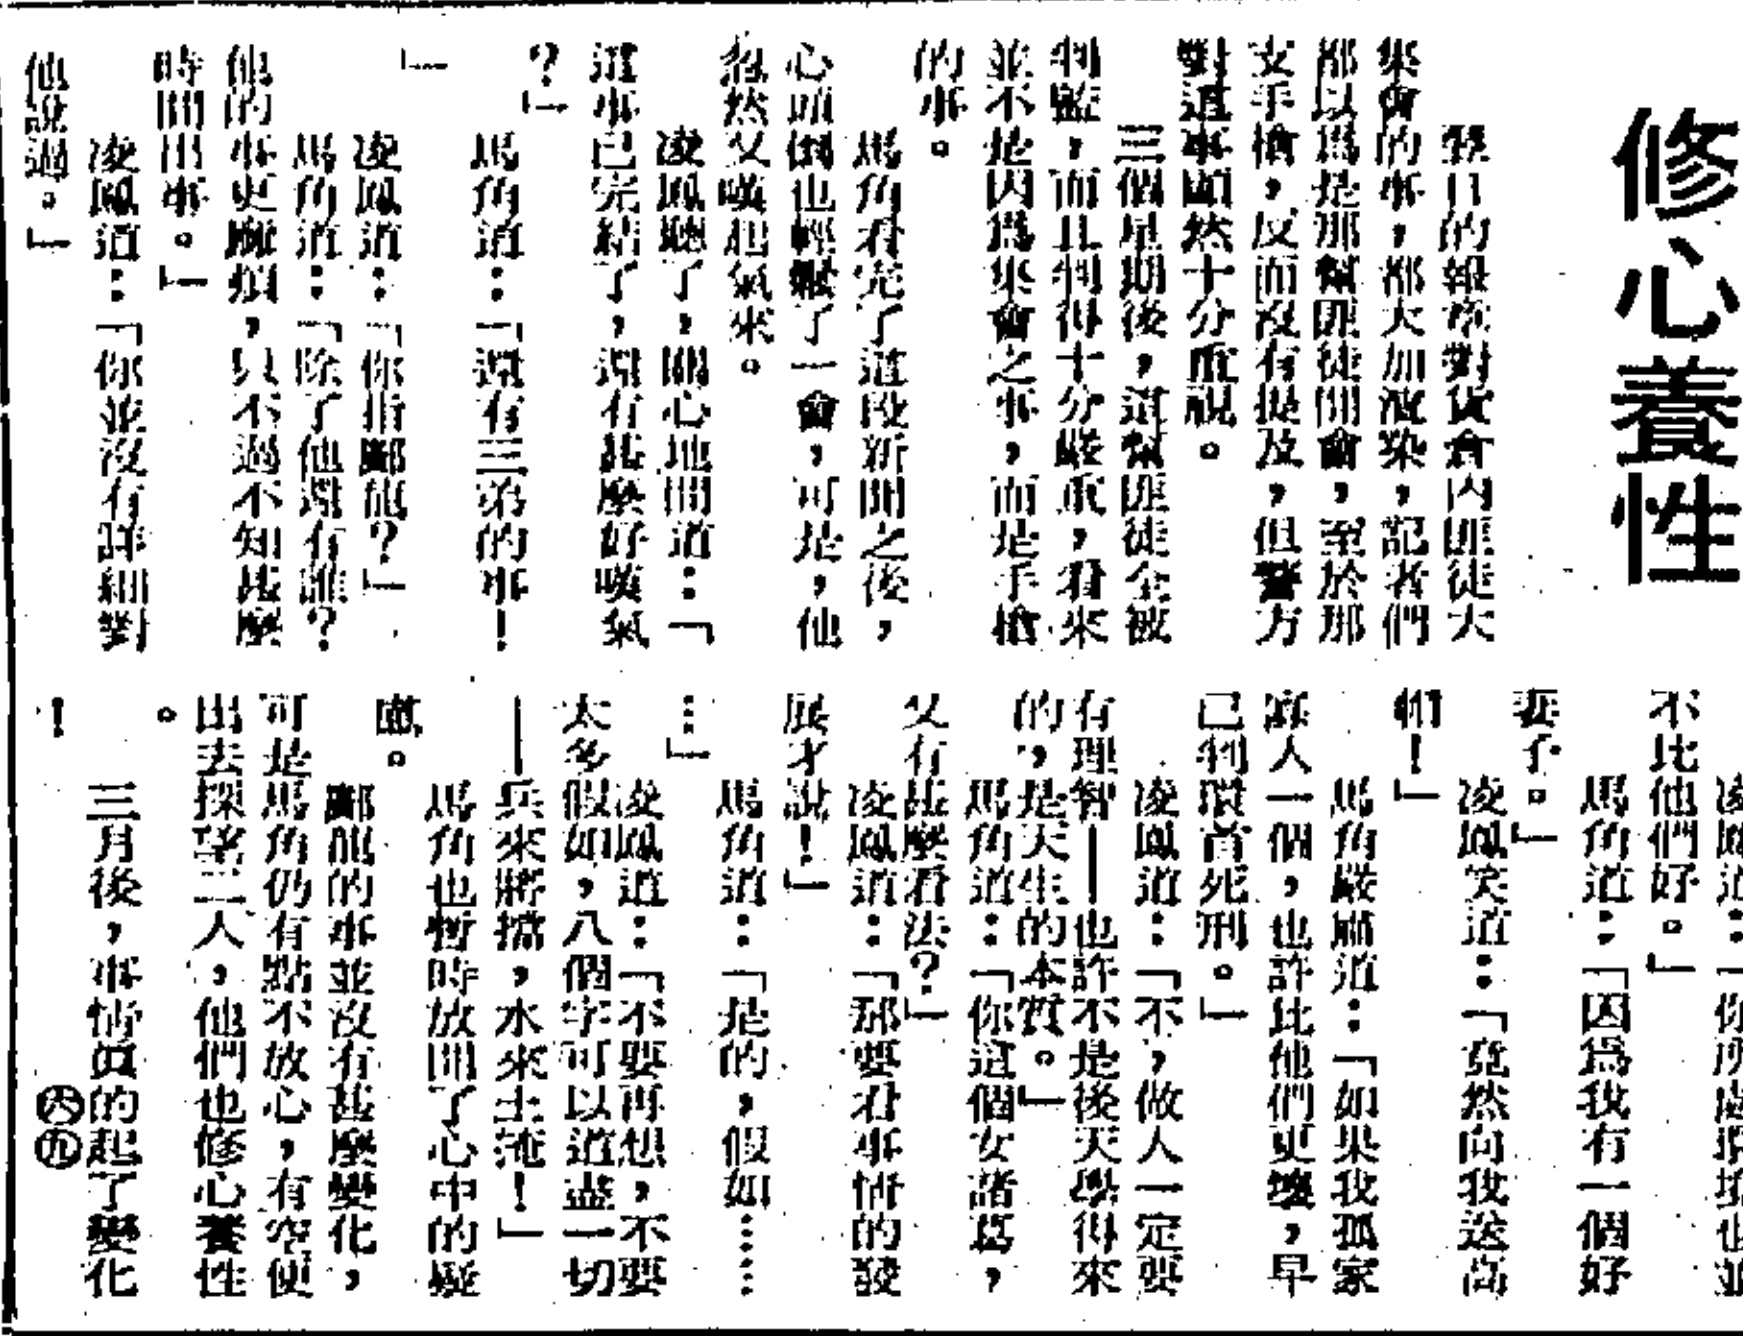 修心養性
翌日的報章對貨倉內匪徒大
集會的事，都大加渲染，記者們
都以爲是那幫匪徒開會，至於那
支手槍，反而沒有提及，但警方
對這事顯然十分重視。
三個星期後，這幫匪徒全被
判監，而且判得十分嚴重，看來
並不是因爲集會之事，而是手槍
的事。
馬角看完了這段新聞之後，
心頭倒也輕鬆了一會，可是，他
忽然又嘆起氣來。
凌鳳聽了，關心地問道：「
這事已完結了，還有甚麼好嘆氣
？」
馬角道：「還有三弟的事！
」
凌鳳道：「你指鄺龍？」
馬角道：「除了他還有誰？
他的事更麻煩，只不過不知甚麼
時間出事。」
凌鳳道：「你並沒有詳細對
他說過。」
凌鳳道：「你所處環境也並
不比他們好。」
馬角道：「因爲我有一個好
妻子。」
凌鳳笑道：「竟然向我送高
帽！」
馬角嚴肅道：「如果我孤家
寡人一個，也許比他們更壞，早
已判環首死刑。」
凌鳳道：「不，做人一定要
有理智——也許不是後天學得來
的，是天生的本質。」
馬角道：「你這個女諸葛，
又有甚麼看法？」
凌鳳道：「那要看事情的發
展才說！」
馬角道：「是的，假如……
…」
凌鳳道：「不要再想，不要
太多假如，八個字可以道盡一切
——兵來將擋，水來土掩！」
馬角也暫時放開了心中的疑
慮。
鄺龍的事並沒有甚麼變化，
可是馬角仍有點不放心，有空便
出去探望二人，他們也修心養性
。
三月後，事情真的起了變化
！
六九